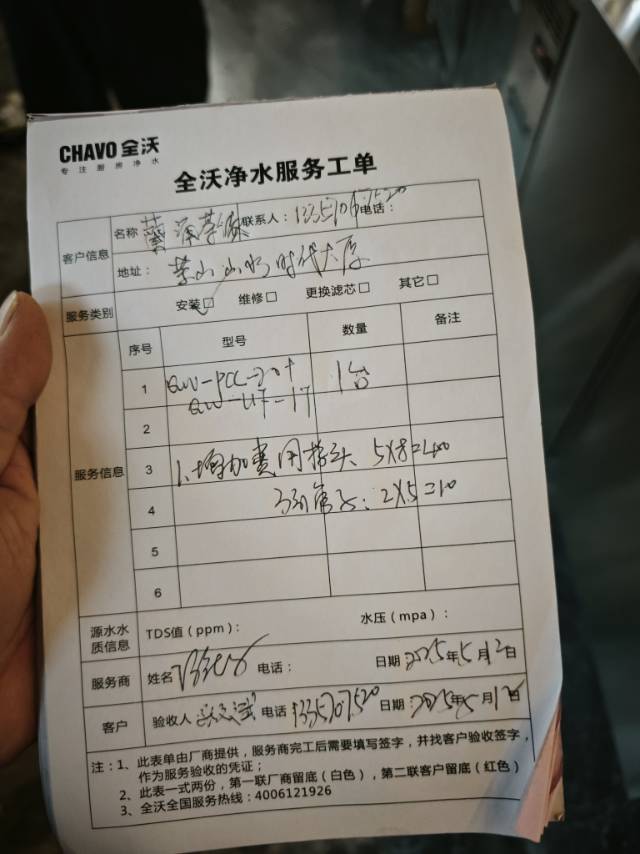 CHAVO 全沃
专注厨房净水
全沃净水服务工单
客户信息 名称 联系人： 电话：
地址： 山水时代大厦
服务类别 安装□ 维修□ 更换滤芯□ 其它□
服务信息 序号 型号 数量 备注
1 1台
2
3 1、增加费用接头 5×8=40
4 3分管子：2×5=10
5
6
源水水质信息 TDS值（ppm）： 水压（mpa）：
服务商 姓名 电话： 日期 2025年5月12日
客户 验收人 电话 日期：2025年5月12日
注：1、此表单由厂商提供，服务商完工后需要填写签字，并找客户验收签字，
作为服务验收的凭证；
2、此表一式两份，第一联厂商留底（白色），第二联客户留底（红色）
3、全沃全国服务热线：4006121926